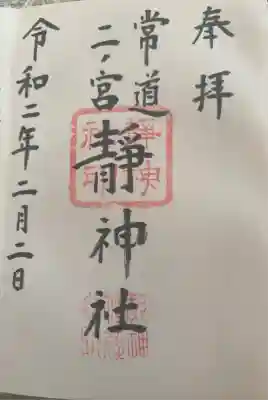 奉拝
常道
二ノ宮
靜神社
令和二年二月二日